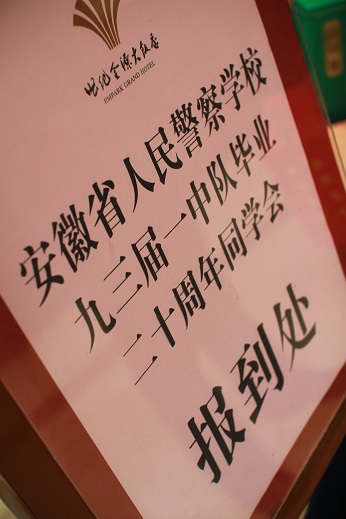 世纪金源大饭店
EMPARK GRAND HOTEL
安徽省人民警察学校
九三届一中队毕业
二十周年同学会
报到处